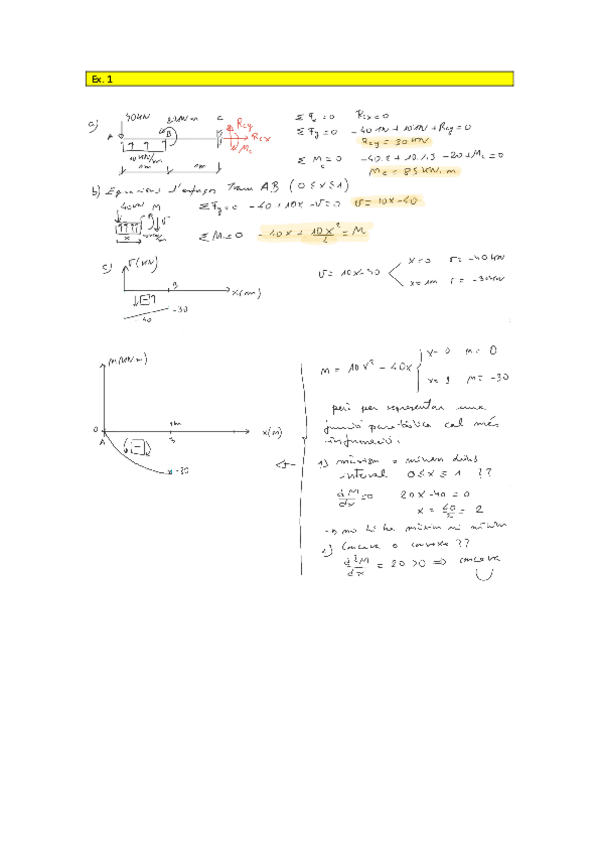 Ex. 1
a) 40kN C
A B Rcy
Rcx
Mc
10 kN/m
1m 1m
Σ Fx = 0 Rcx = 0
Σ Fy = 0 -40kN + 10kN + Rcy = 0
Rcy = 30 kN
Σ Mc = 0 -40.2 + 10.1,5 -20 + Mc = 0
Mc = 85 kN.m
b) Equacions d'esforços Tram AB (0≤x≤1)
40kN M
x
Σ Fy = 0 -40 + 10x - v = 0 v = 10x-40
Σ M = 0 -40x + 10x² = M
c) v (kN)
B x(m)
[-]
-40 -30
v = 10x-40 x=0 v = -40kN
x=1m v = -30kN
M (kN m)
1m
0 x(m)
A B
(-)
-30
M = 10x² - 40x x=0 M = 0
x=1 M = -30
però per representar una
funció parabòlica cal més
informació.
1) màxim o mínim dins
interval 0≤x≤1 ??
dM/dx = 0 20x-40 = 0
x = 40/20 = 2
→ no hi ha màxim ni mínim
2) Concava o convexa ??
d²M/dx = 20 >0 ⇒ concava